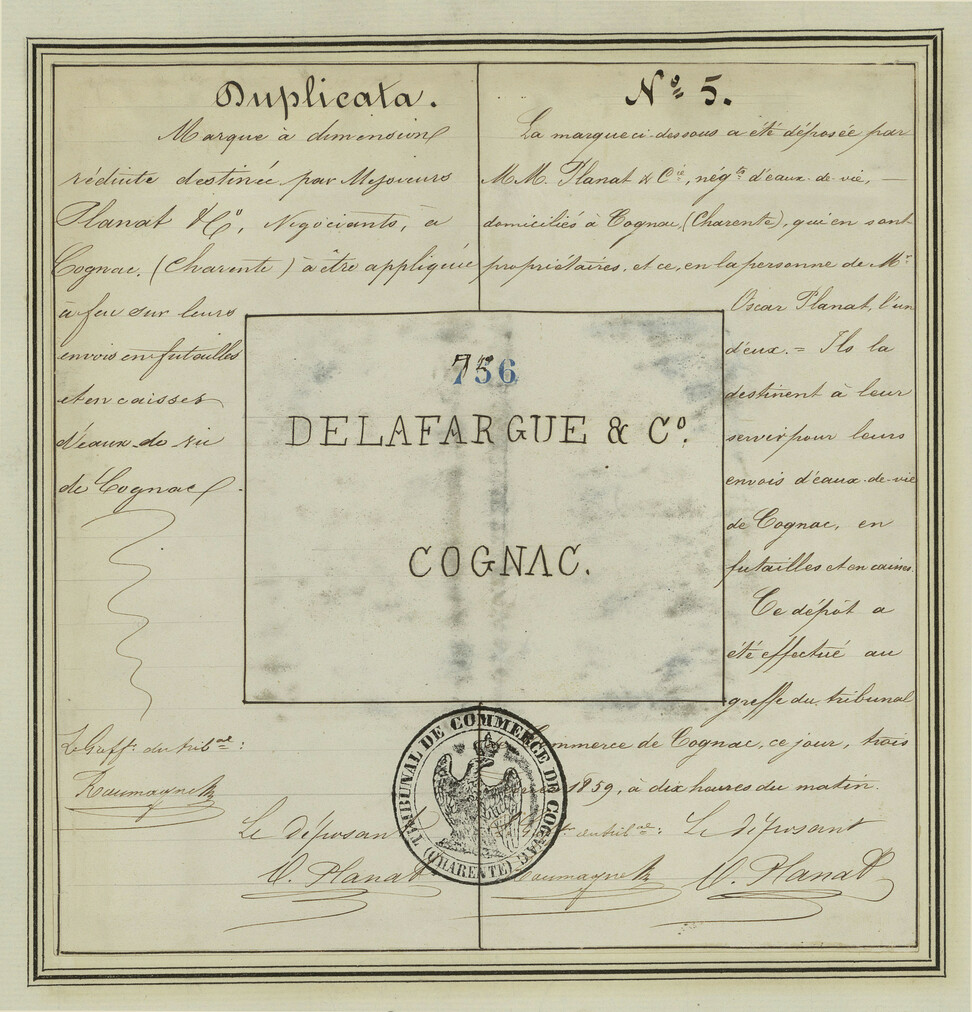 Duplicata.
Marque à dimension
réduite destinée par Messieurs
Planat & Cº, Négociants, à
Cognac, (Charente) à être appliquée
à feu sur leurs
envois en futailles
et en caisses
d'eaux-de-vie
de Cognac.
Le Greff. du tribal:
Le déposant
O. Planat
Nº 5.
La marque ci-dessous a été déposée par
MM. Planat & Cie, négts d'eaux-de-vie, —
domiciliés à Cognac, (Charente), qui en sont
propriétaires, et ce, en la personne de Mr
Oscar Planat, l'un
d'eux. = Ils la
destinent à leur
servir pour leurs
envois d'eaux-de-vie
de Cognac, en
futailles et en caisses.
Ce dépôt a
été effectué au
greffe du tribunal
Commerce de Cognac, ce jour, trois
1859, à dix heures du matin.
du tribal: Le déposant
O. Planat
756
DELAFARGUE & Cº.
COGNAC.
TRIBUNAL DE COMMERCE DE COGNAC
(CHARENTE)